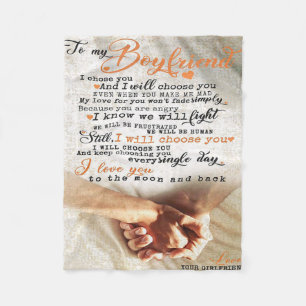 To my
Boyfriend
I chose you
And I will choose you
EVEN WHEN YOU MAKE ME MAD
My love for you won't fade simply
Because you are angry
I know we will fight
WE WILL BE FRUSTRATED
WE WILL BE HUMAN
Still, I will choose you
I WILL CHOOSE YOU
And keep choosing you
every single day
I love you
to the moon and back
Love
YOUR GIRLFRIEN